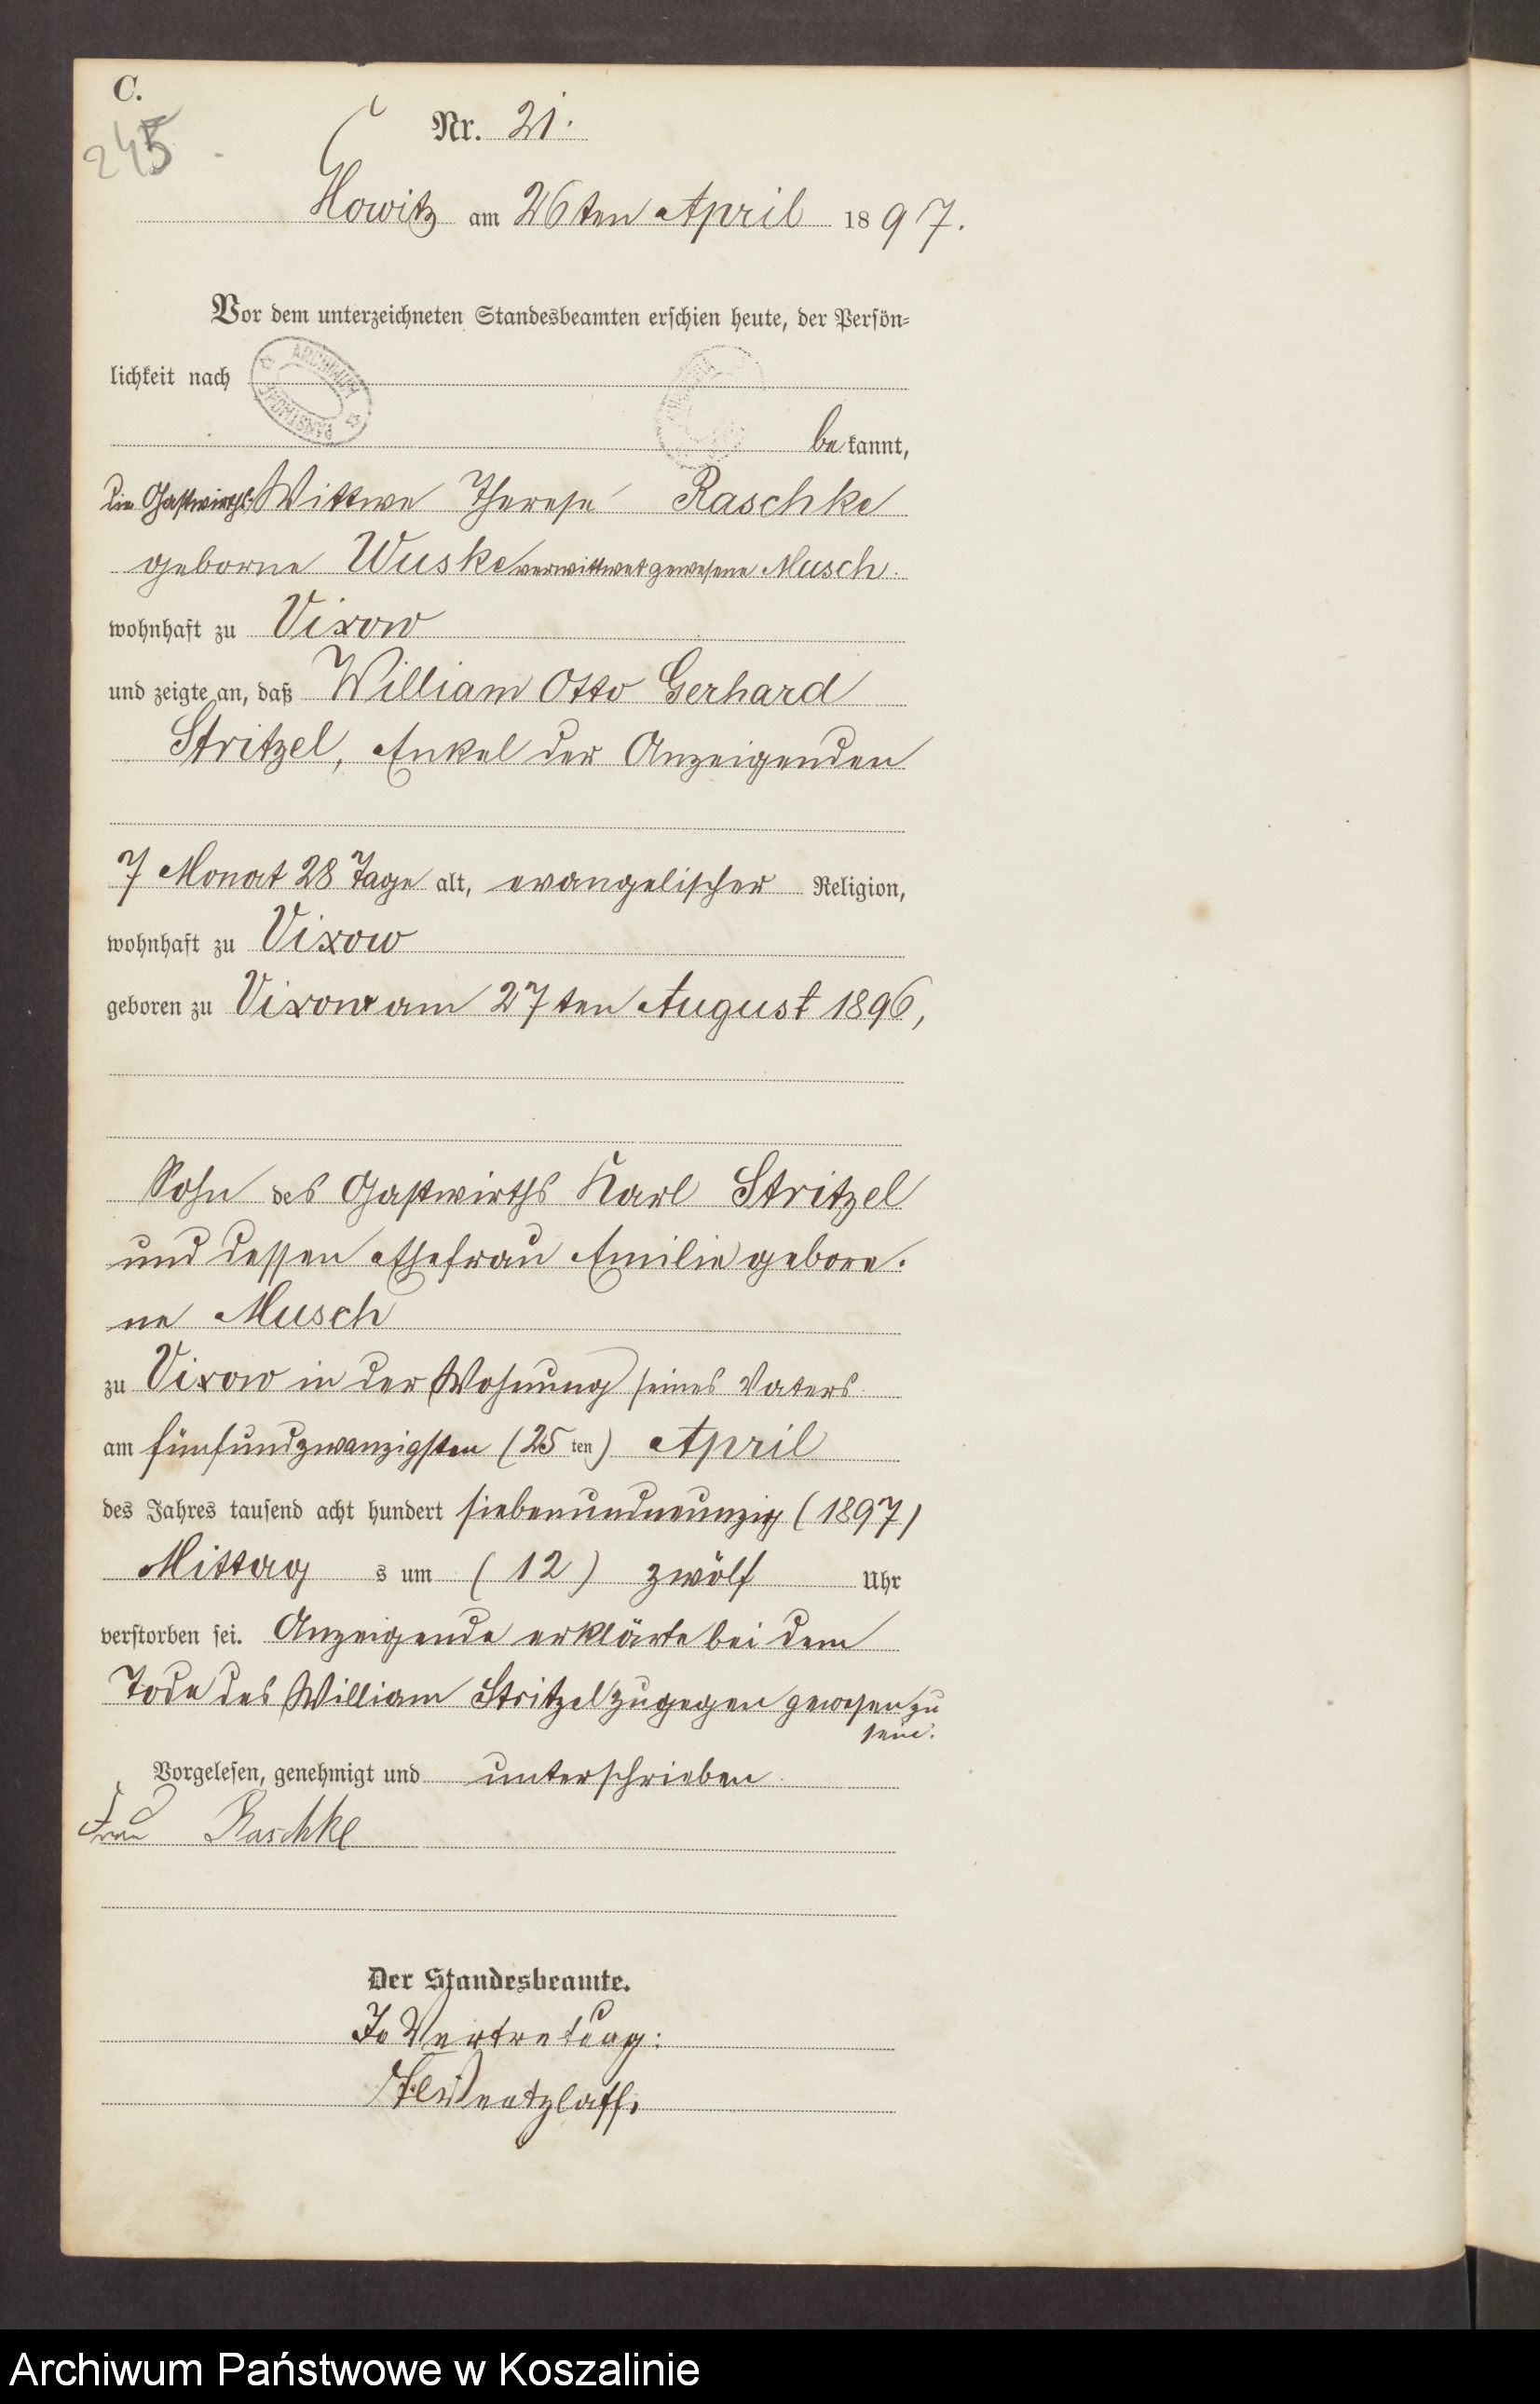 C.
245
Nr. 21.
Gowitz am 26ten April 1897.
Vor dem unterzeichneten Standesbeamten erschien heute, der Persön-
lichkeit nach
ARCHIWUM PAŃSTWOWE
bekannt,
die Gastwirths Wittwe Therese Raschke
geborne Wuske verwittwet gewesene Musch.
wohnhaft zu Vixow
und zeigte an, daß William Otto Gerhard
Stritzel, Enkel der Anzeigenden
7 Monat 28 Tage alt, evangelischer Religion,
wohnhaft zu Vixow
geboren zu Vixow am 27ten August 1896,
Sohn des Gastwirths Karl Stritzel
und dessen Ehefrau Emilie gebore-
ne Musch
zu Vixow in der Wohnung seines Vaters
am fünfundzwanzigsten (25ten) April
des Jahres tausend acht hundert siebenundneunzig (1897)
Mittags um (12) zwölf Uhr
verstorben sei. Anzeigende erklärte bei dem
Tode des William Stritzel zugegen gewesen zu
sein.
Vorgelesen, genehmigt und unterschrieben
Frau Raschke
Der Standesbeamte.
In Vertretung:
Archiwum Państwowe w Koszalinie